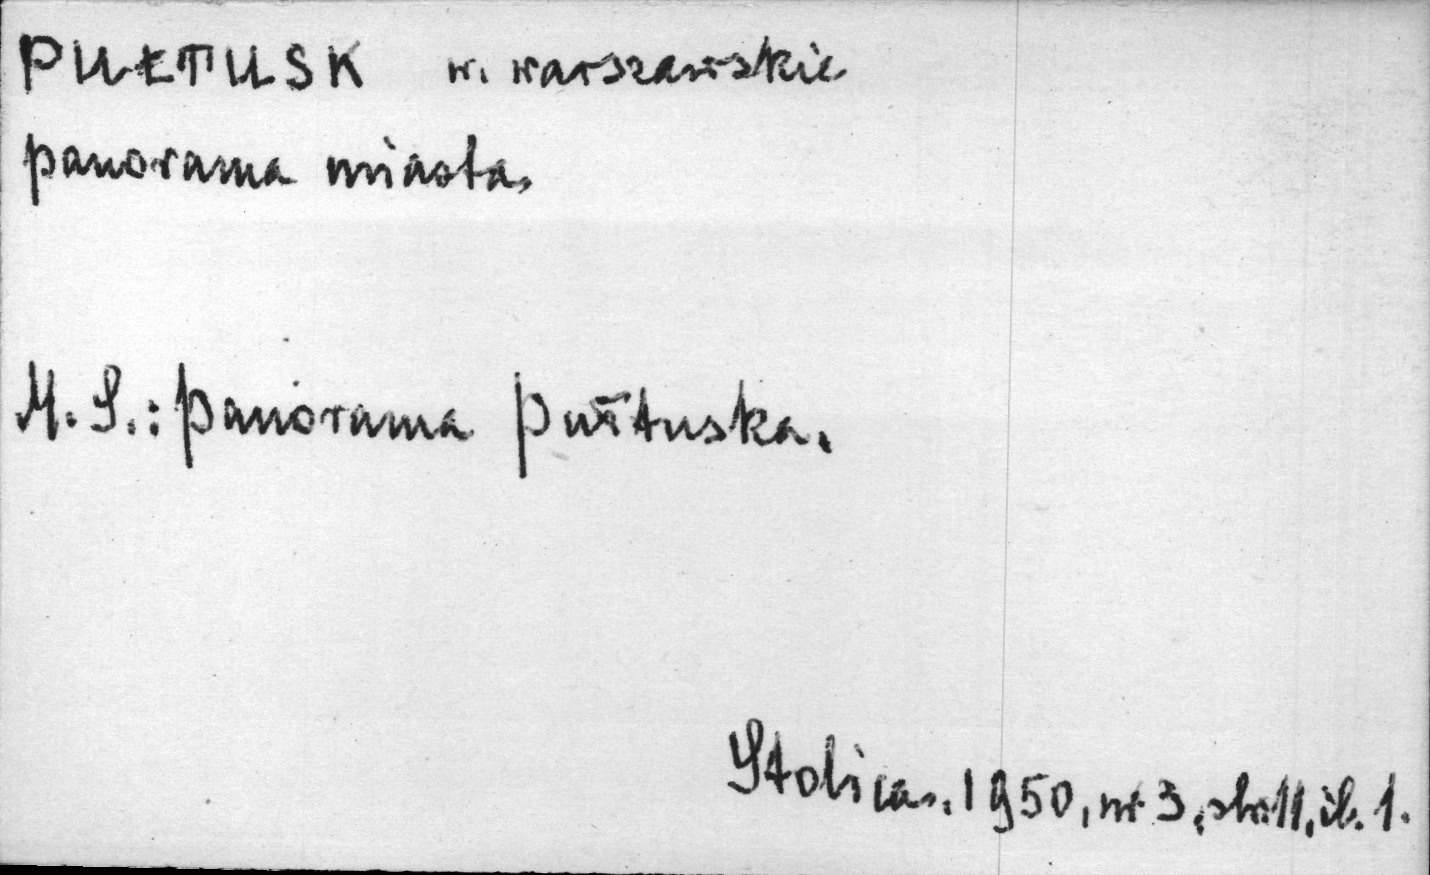 PUŁTUSK w. warszawskie
panorama miasta.
M. S.: panorama Pułtuska.
Stolica. 1950, nr 3, str. 11, il. 1.